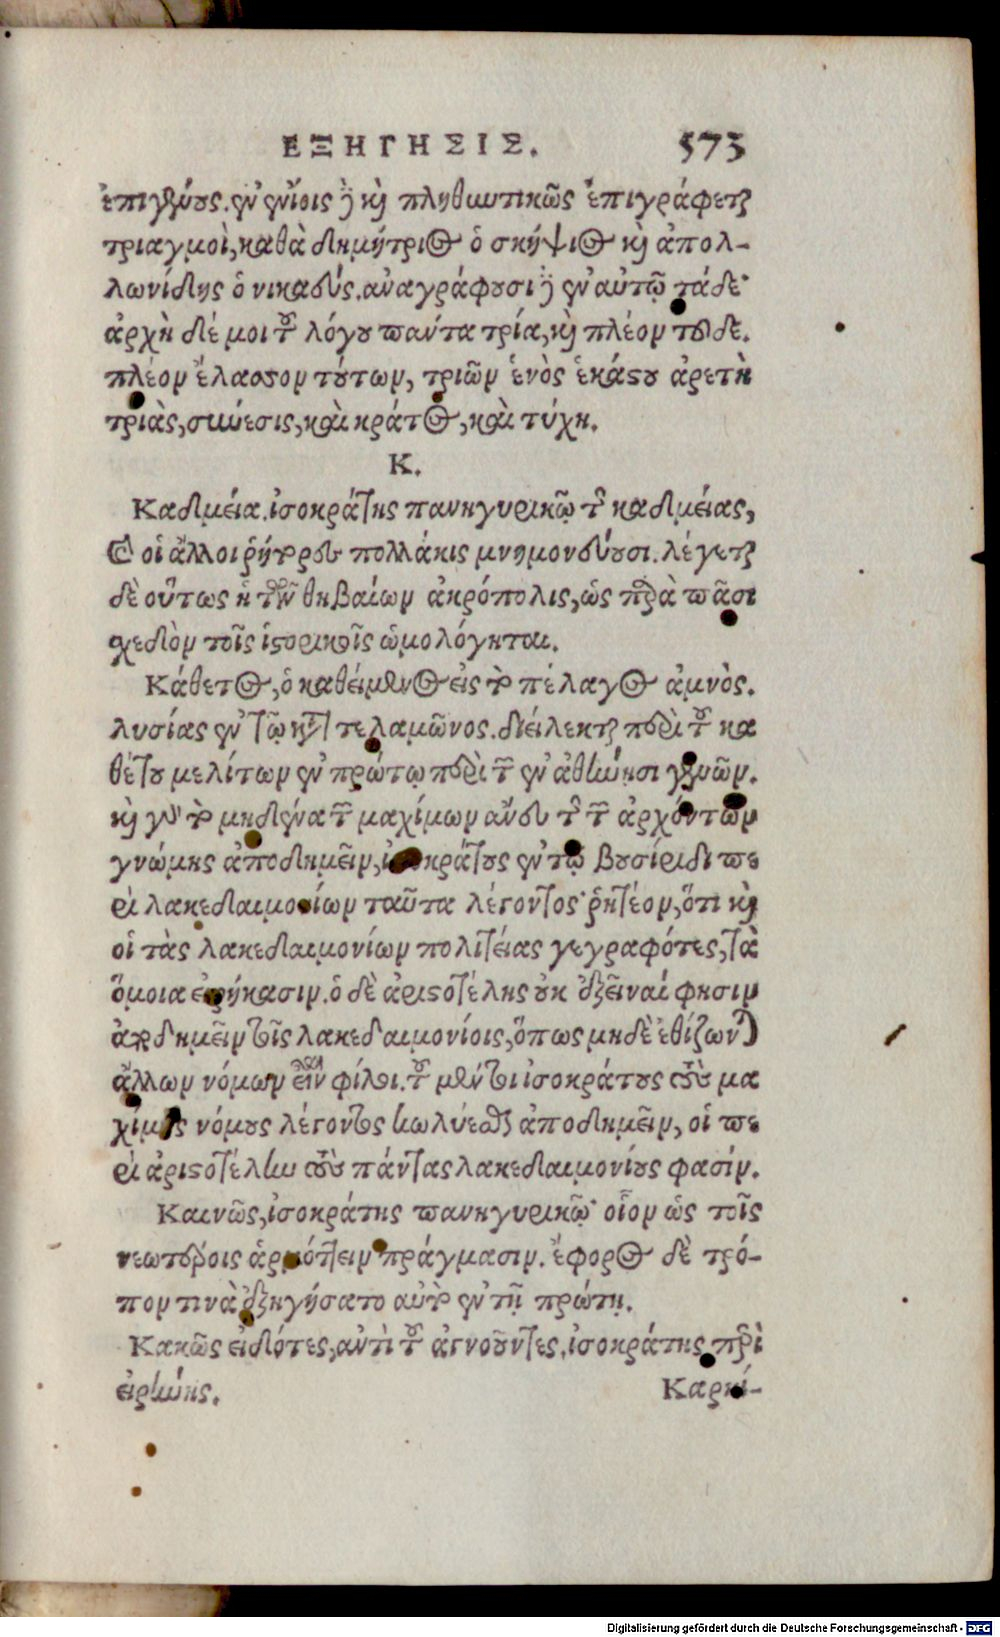 ΕΞΗΓΗΣΙΣ. 573
ἐπιγένους. ἐν ἐνίοις δὲ καὶ πληθυντικῶς ἐπιγράφεται
τριαγμοὶ, καθὰ δημήτριος ὁ σκήψιος καὶ ἀπολ-
λωνίδης ὁ νικαεύς. ἀναγράφουσι δὲ ἐν αὐτῷ τάδε·
ἀρχὴ δέ μοι τοῦ λόγου πάντα τρία, καὶ πλέον τοῦδε.
πλέον ἔλασσον τούτων, τριῶν ἑνὸς ἑκάστου ἀρετὴ
τριὰς, σύνεσις, καὶ κράτος, καὶ τύχη.
Κ.
Καδμεία. ἰσοκράτης πανηγυρικῷ τῆς καδμείας,
καὶ οἱ ἄλλοι ῥήτορες πολλάκις μνημονεύουσι. λέγεται
δὲ οὕτως ἡ τῶν θηβαίων ἀκρόπολις, ὡς παρὰ πᾶσι
σχεδὸν τοῖς ἱστορικοῖς ὡμολόγηται.
Κάθετος, ὁ καθείμενος εἰς τὸ πέλαγος ἀμνὸς.
λυσίας ἐν τῷ κατὰ τελαμῶνος. διείλεκται περὶ τοῦ κα
θέτου μελίτων ἐν πρώτῳ περὶ τῶν ἐν ἀθήνησι γενῶν.
καὶ γὰρ τὸ μηδένα τῶν μαχίμων ἄνευ τῆς τῶν ἀρχόντων
γνώμης ἀποδημεῖν, ἰσοκράτους ἐν τῷ βουσίριδι πε
ρὶ λακεδαιμονίων ταῦτα λέγοντος· ῥητέον, ὅτι καὶ
οἱ τὰς λακεδαιμονίων πολιτείας γεγραφότες, τὰ
ὅμοια εἰρήκασιν. ὁ δὲ ἀριστοτέλης οὐκ ἐξεῖναί φησιν
ἀποδημεῖν τοῖς λακεδαιμονίοις, ὅπως μηδὲ ἐθίζωνται
ἄλλων νόμων εἶναι φίλοι. τοῦ μέντοι ἰσοκράτους τοὺς μα
χίμους νόμους λέγοντος κωλύεσθαι ἀποδημεῖν, οἱ πε
ρὶ ἀριστοτέλην τοὺς πάντας λακεδαιμονίους φασίν.
Καινῶς, ἰσοκράτης πανηγυρικῷ· οἷον ὡς τοῖς
νεωτέροις ἁρμόττειν πράγμασιν. ἔφορος δὲ τρό-
πον τινὰ ἐξηγήσατο αὐτὸ ἐν τῇ πρώτῃ.
Κακῶς εἰδότες, ἀντὶ τοῦ ἀγνοοῦντες, ἰσοκράτης περὶ
εἰρήνης. Καρκί-
Digitalisierung gefördert durch die Deutsche Forschungsgemeinschaft - DFG